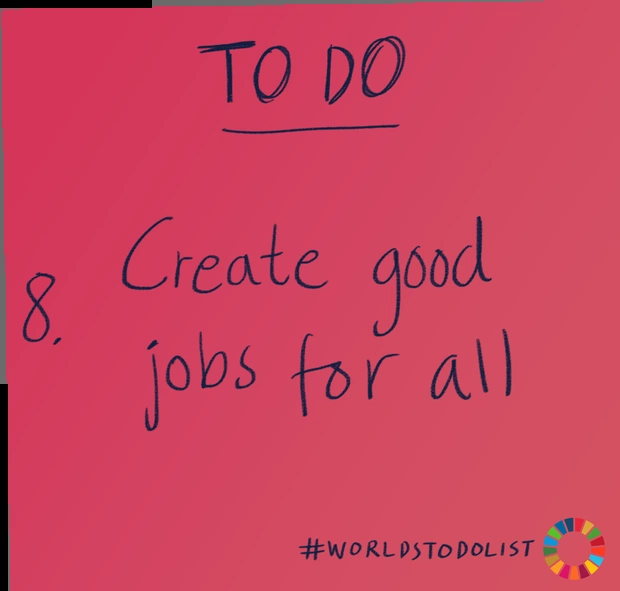 TO DO
8. Create good
jobs for all
#WORLDSTODOLIST